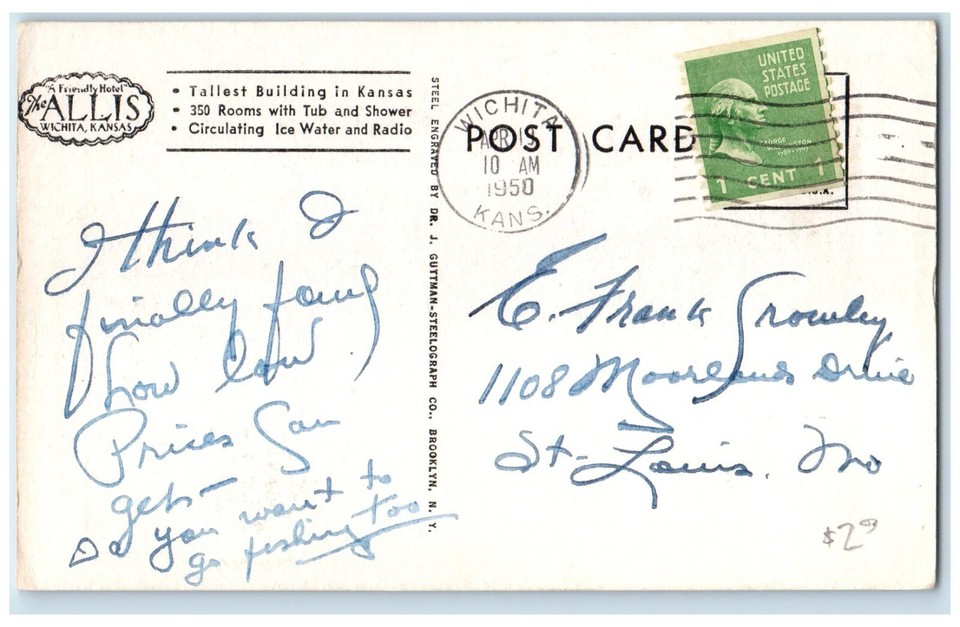 "A Friendly Hotel"
The ALLIS
WICHITA, KANSAS
• Tallest Building in Kansas
• 350 Rooms with Tub and Shower
• Circulating Ice Water and Radio
I think I
finally found
how low
Prices can
get—
Do you want to
go fishing too
STEEL ENGRAVED BY DR. J. GUTTMAN-STEELOGRAPH CO., BROOKLYN, N. Y.
POST CARD
WICHITA
APR
10 AM
1950
KANS.
UNITED
STATES
POSTAGE
GEORGE
WASHINGTON
1 CENT 1
E. Frank Gromley
1108 Moorlands Drive
St. Louis, Mo
$2⁹